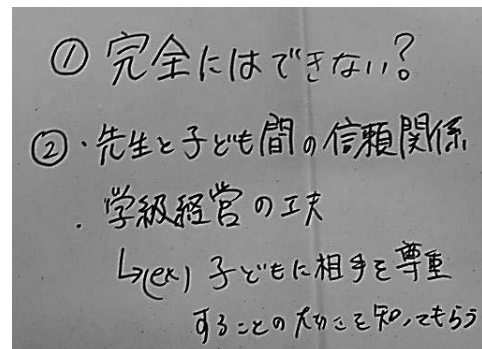 ① 完全にはできない?
② ・先生と子ども間の信頼関係
・学級経営の工夫
↳(ex) 子どもに相手を尊重
することの大切さを知ってもらう